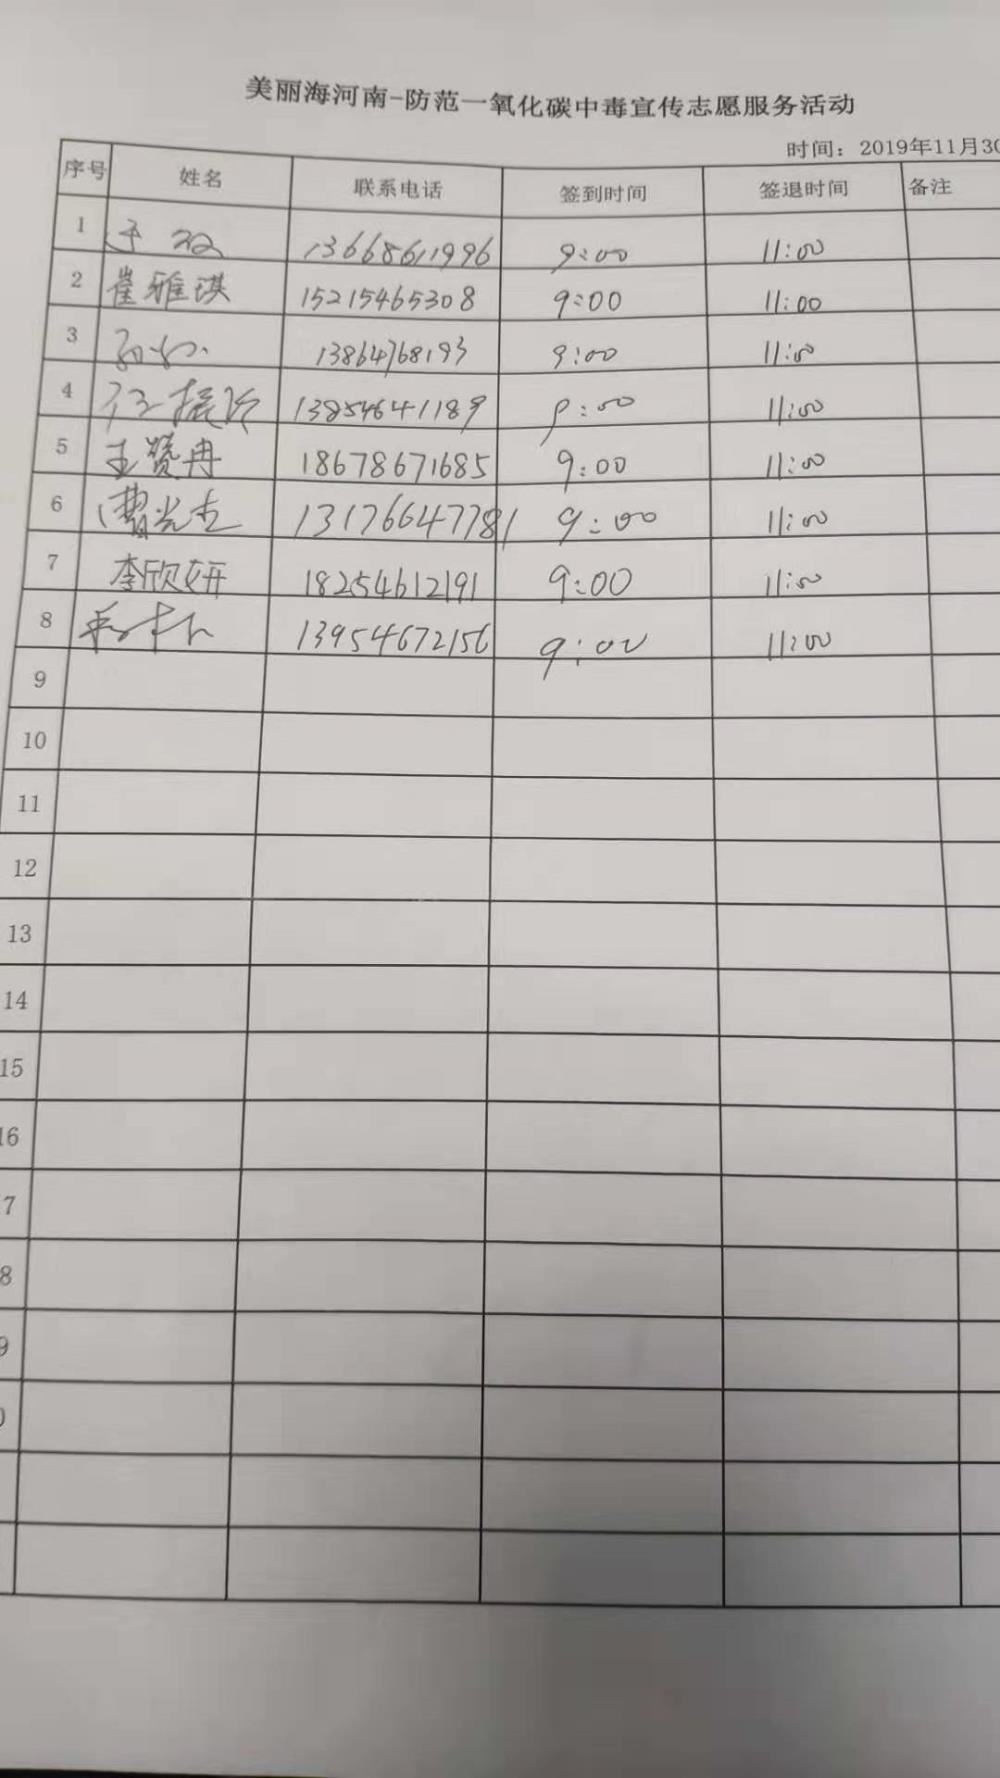 美丽海河南-防范一氧化碳中毒宣传志愿服务活动
时间：2019年11月30
序号 姓名 联系电话 签到时间 签退时间 备注
1 于双 13668611996 9:00 11:00
2 崔雅琪 15215465308 9:00 11:00
3 13864768193 9:00 11:00
4 13854641189 9:00 11:00
5 王赞冉 18678671685 9:00 11:00
6 曹光杰 13176647781 9:00 11:00
7 李欣妍 18254612191 9:00 11:00
8 13954672156 9:00 11:00
9
10
11
12
13
14
15
16
7
8
9
0